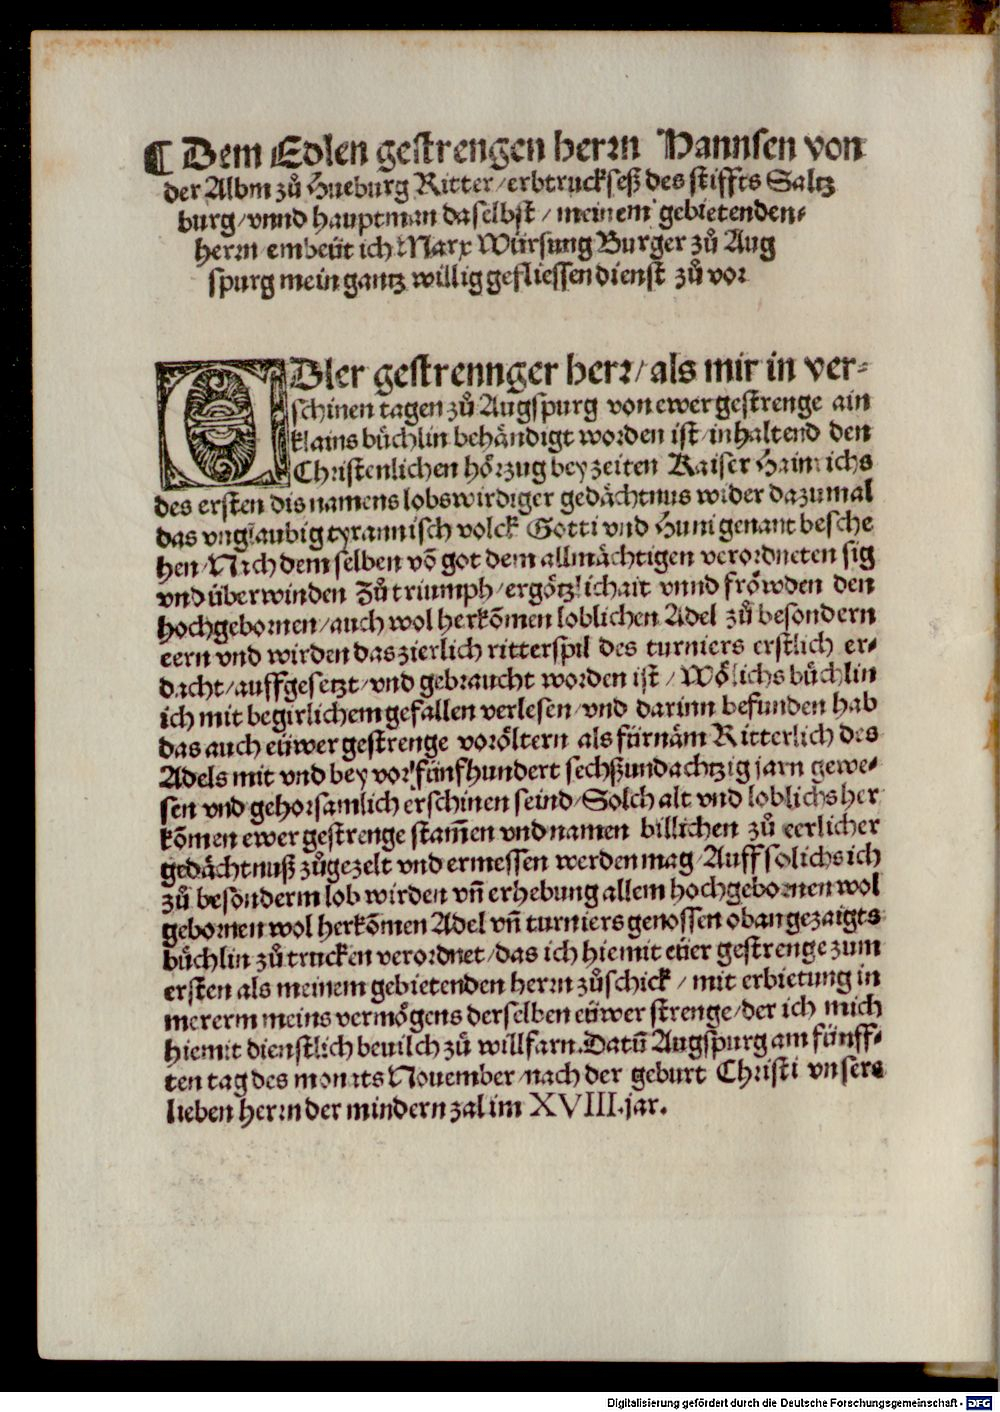 ¶ Dem Edlen gestrengen herrn Hannsen von
der Albm zů Hueburg Ritter/erbtruckseß des stiffts Saltz
burg/vnnd hauptman daselbst/meinem gebietenden-
herrn embeüt ich Marx Würsung Burger zů Aug
spurg mein gantz willig gefliessen dienst zů vor
EDler gestrennger herr/als mir in ver-
schinen tagen zů Augspurg von ewer gestrenge ain
klains bůchlin behändigt worden ist/inhaltend den
Christenlichen hörzug bey zeiten Kaiser Hainrichs
des ersten dis namens lobswirdiger gedächtnus wider dazumal
das vnglaubig tyrannisch volck Gotti vnd Huni genant besche
hen/Nach dem selben võ got dem allmächtigen verordneten sig
vnd überwinden Zů triumph/ergötzlichait vnnd fröwden den
hochgebornen/auch wol herkõmen loblichen Adel zů besondern
eern vnd wirden das zierlich ritterspil des turniers erstlich er-
dacht/auffgesetzt/vnd gebraucht worden ist/Wölichs bůchlin
ich mit begirlichem gefallen verlesen/vnd darinn befunden hab
das auch eüwer gestrenge voröltern als fürnäm Ritterlich des
Adels mit vnd bey vor fünfhundert sechßundachtzig jarn gewe-
sen vnd gehorsamlich erschinen seind/Solch alt vnd loblichs her
kõmen ewer gestrenge stam̄en vnd namen billichen zů eerlicher
gedächtnuß zůgezelt vnd ermessen werden mag/Auff solichs ich
zů besonderm lob wirden vñ erhebung allem hochgebornen wol
gebornen wol herkõmen Adel vñ turniers genossen oban gezaigts
bůchlin zů trucken verordnet/das ich hiemit eüer gestrenge zum
ersten als meinem gebietenden herrn zůschick/mit erbietung in
mererm meins vermögens derselben eüwer strenge/der ich mich
hiemit dienstlich beuilch zů willfarn.Datū Augspurg am fünff-
ten tag des monats Nouember/nach der geburt Christi vnsers
lieben herrn der mindern zal im XVIII.jar.
Digitalisierung gefördert durch die Deutsche Forschungsgemeinschaft - DFG